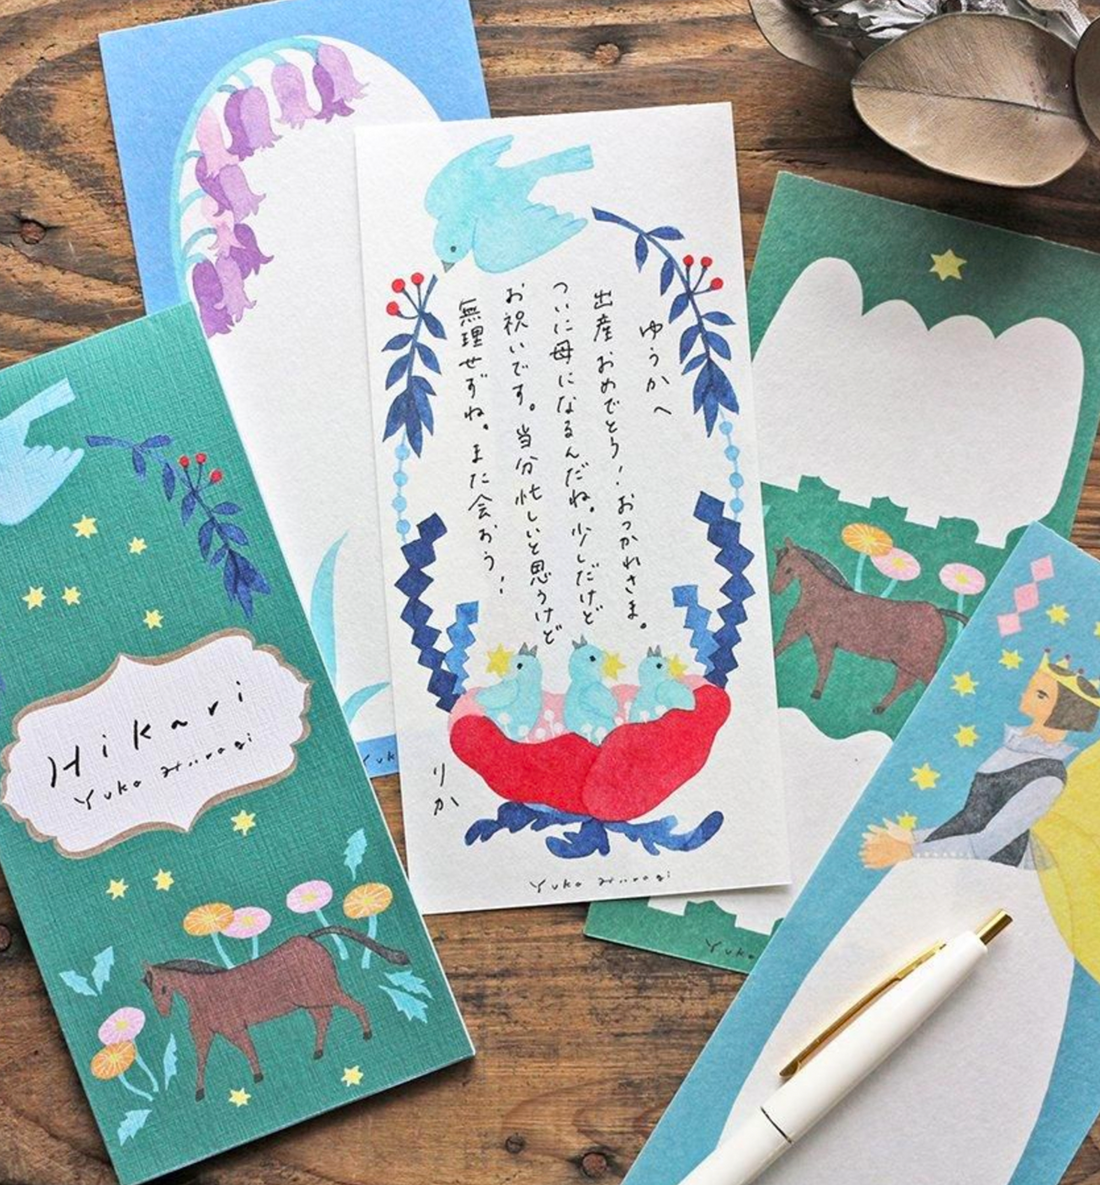 ゆうかへ
出産おめでとう！おつかれさま。
ついに母になるんだね。少しだけど
お祝いです。当分忙しいと思うけど
無理せずね。また会おう！
りか
Yuko
Hikari
Yuko
Yuko
Yuko